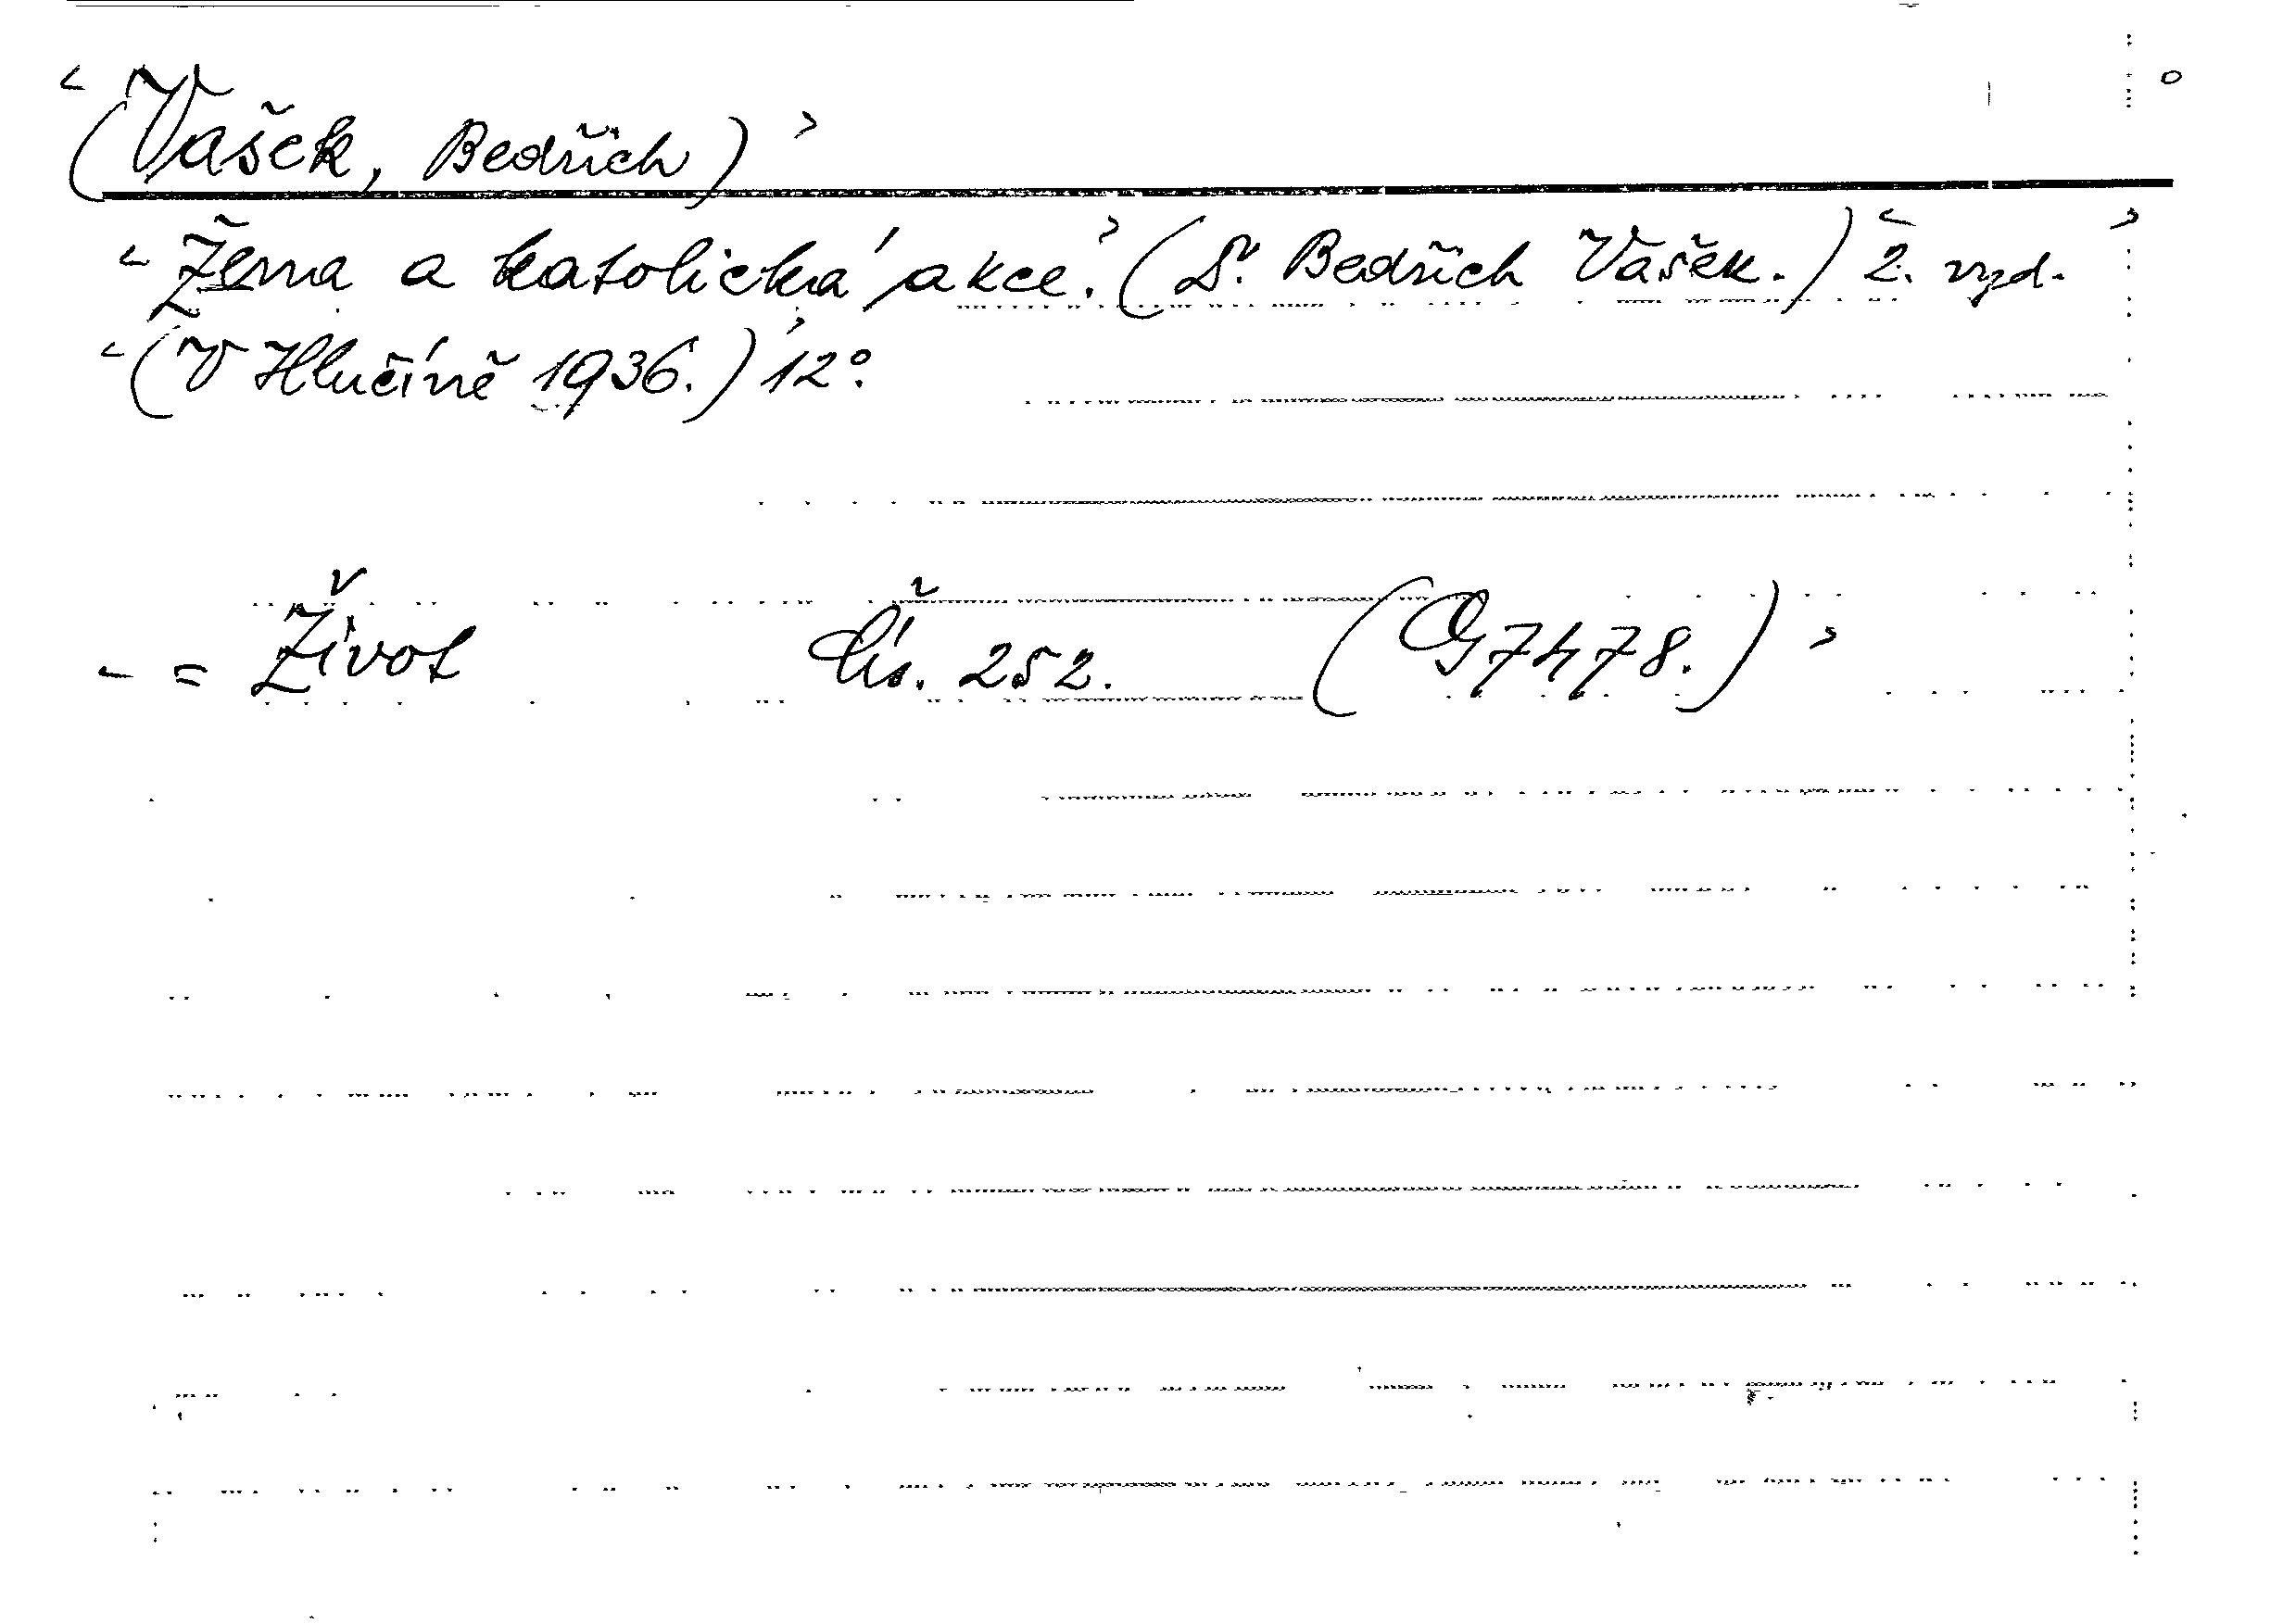 <(Vašek, Bedřich)>
<Žena a katolická akce.>(Dr. Bedřich Vašek.)<2. vyd.>
<(V Hlučíně 1936.)>12°.
<= Život Čís. 252. (G 7478.)>